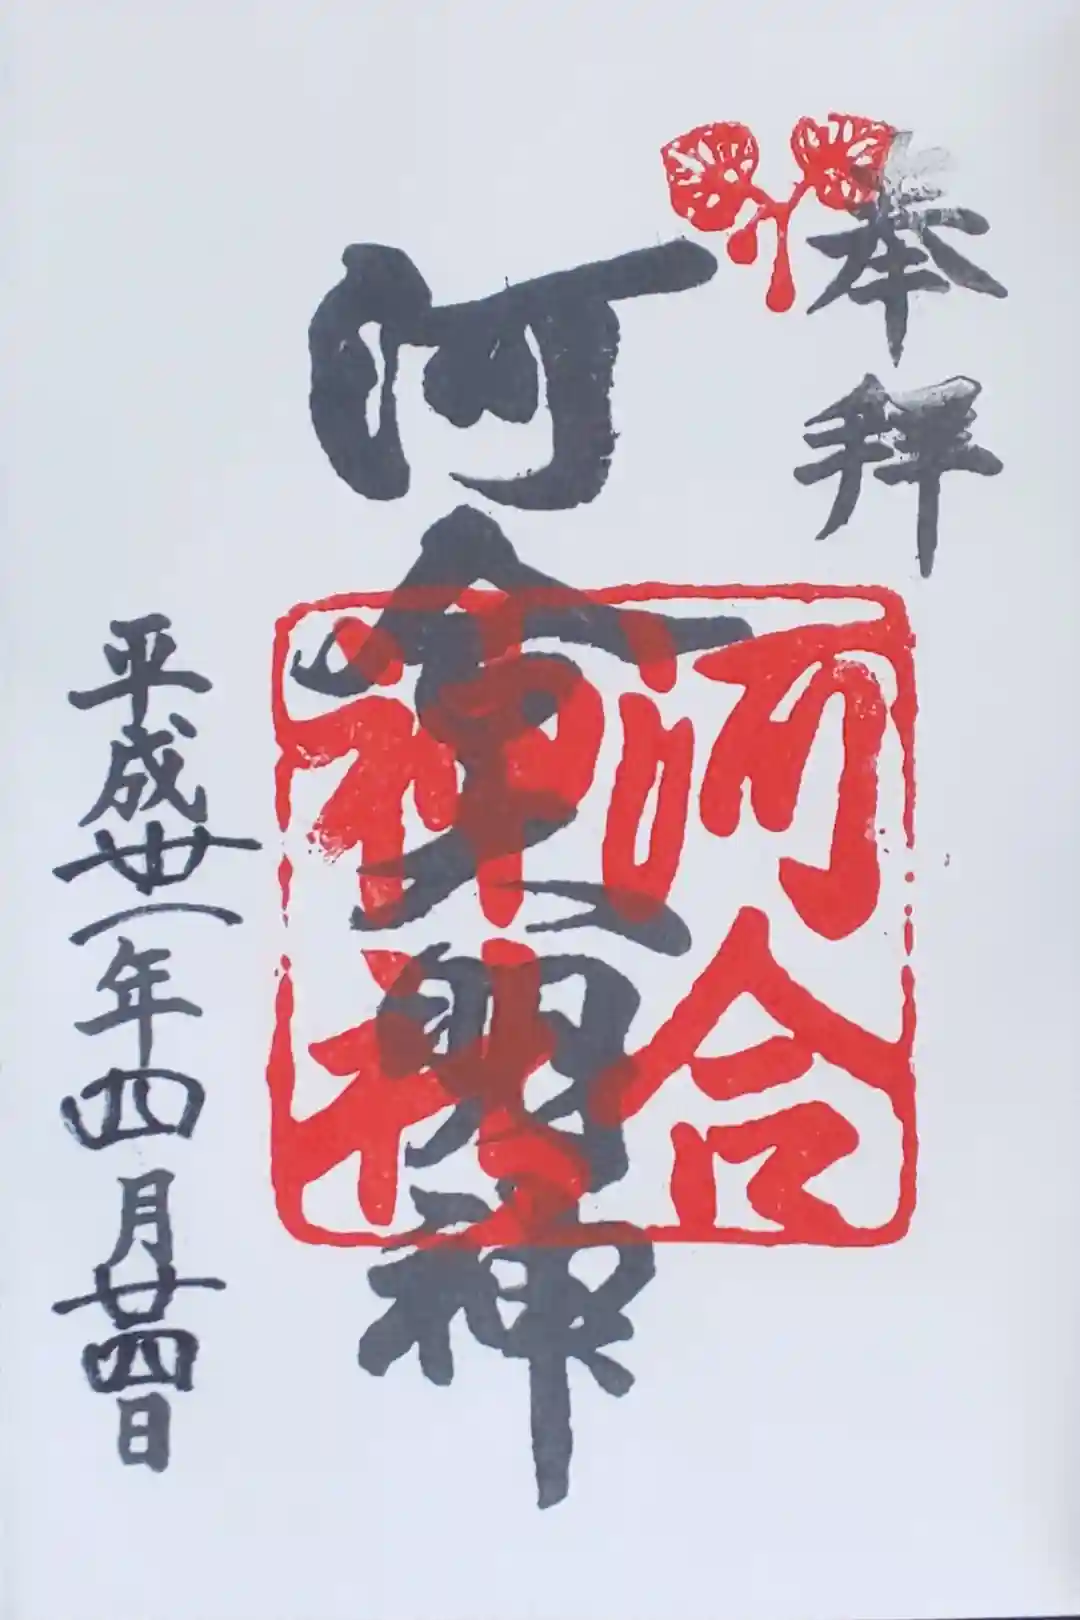 奉拝
河合大明神
河合
神社
平成卅一年四月廿四日